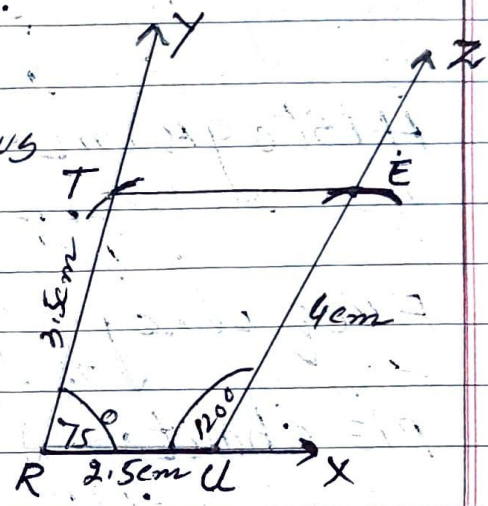 Y
Z
us
T
E
3.5cm
4cm
75°
120°
R
2.5cm
U
X